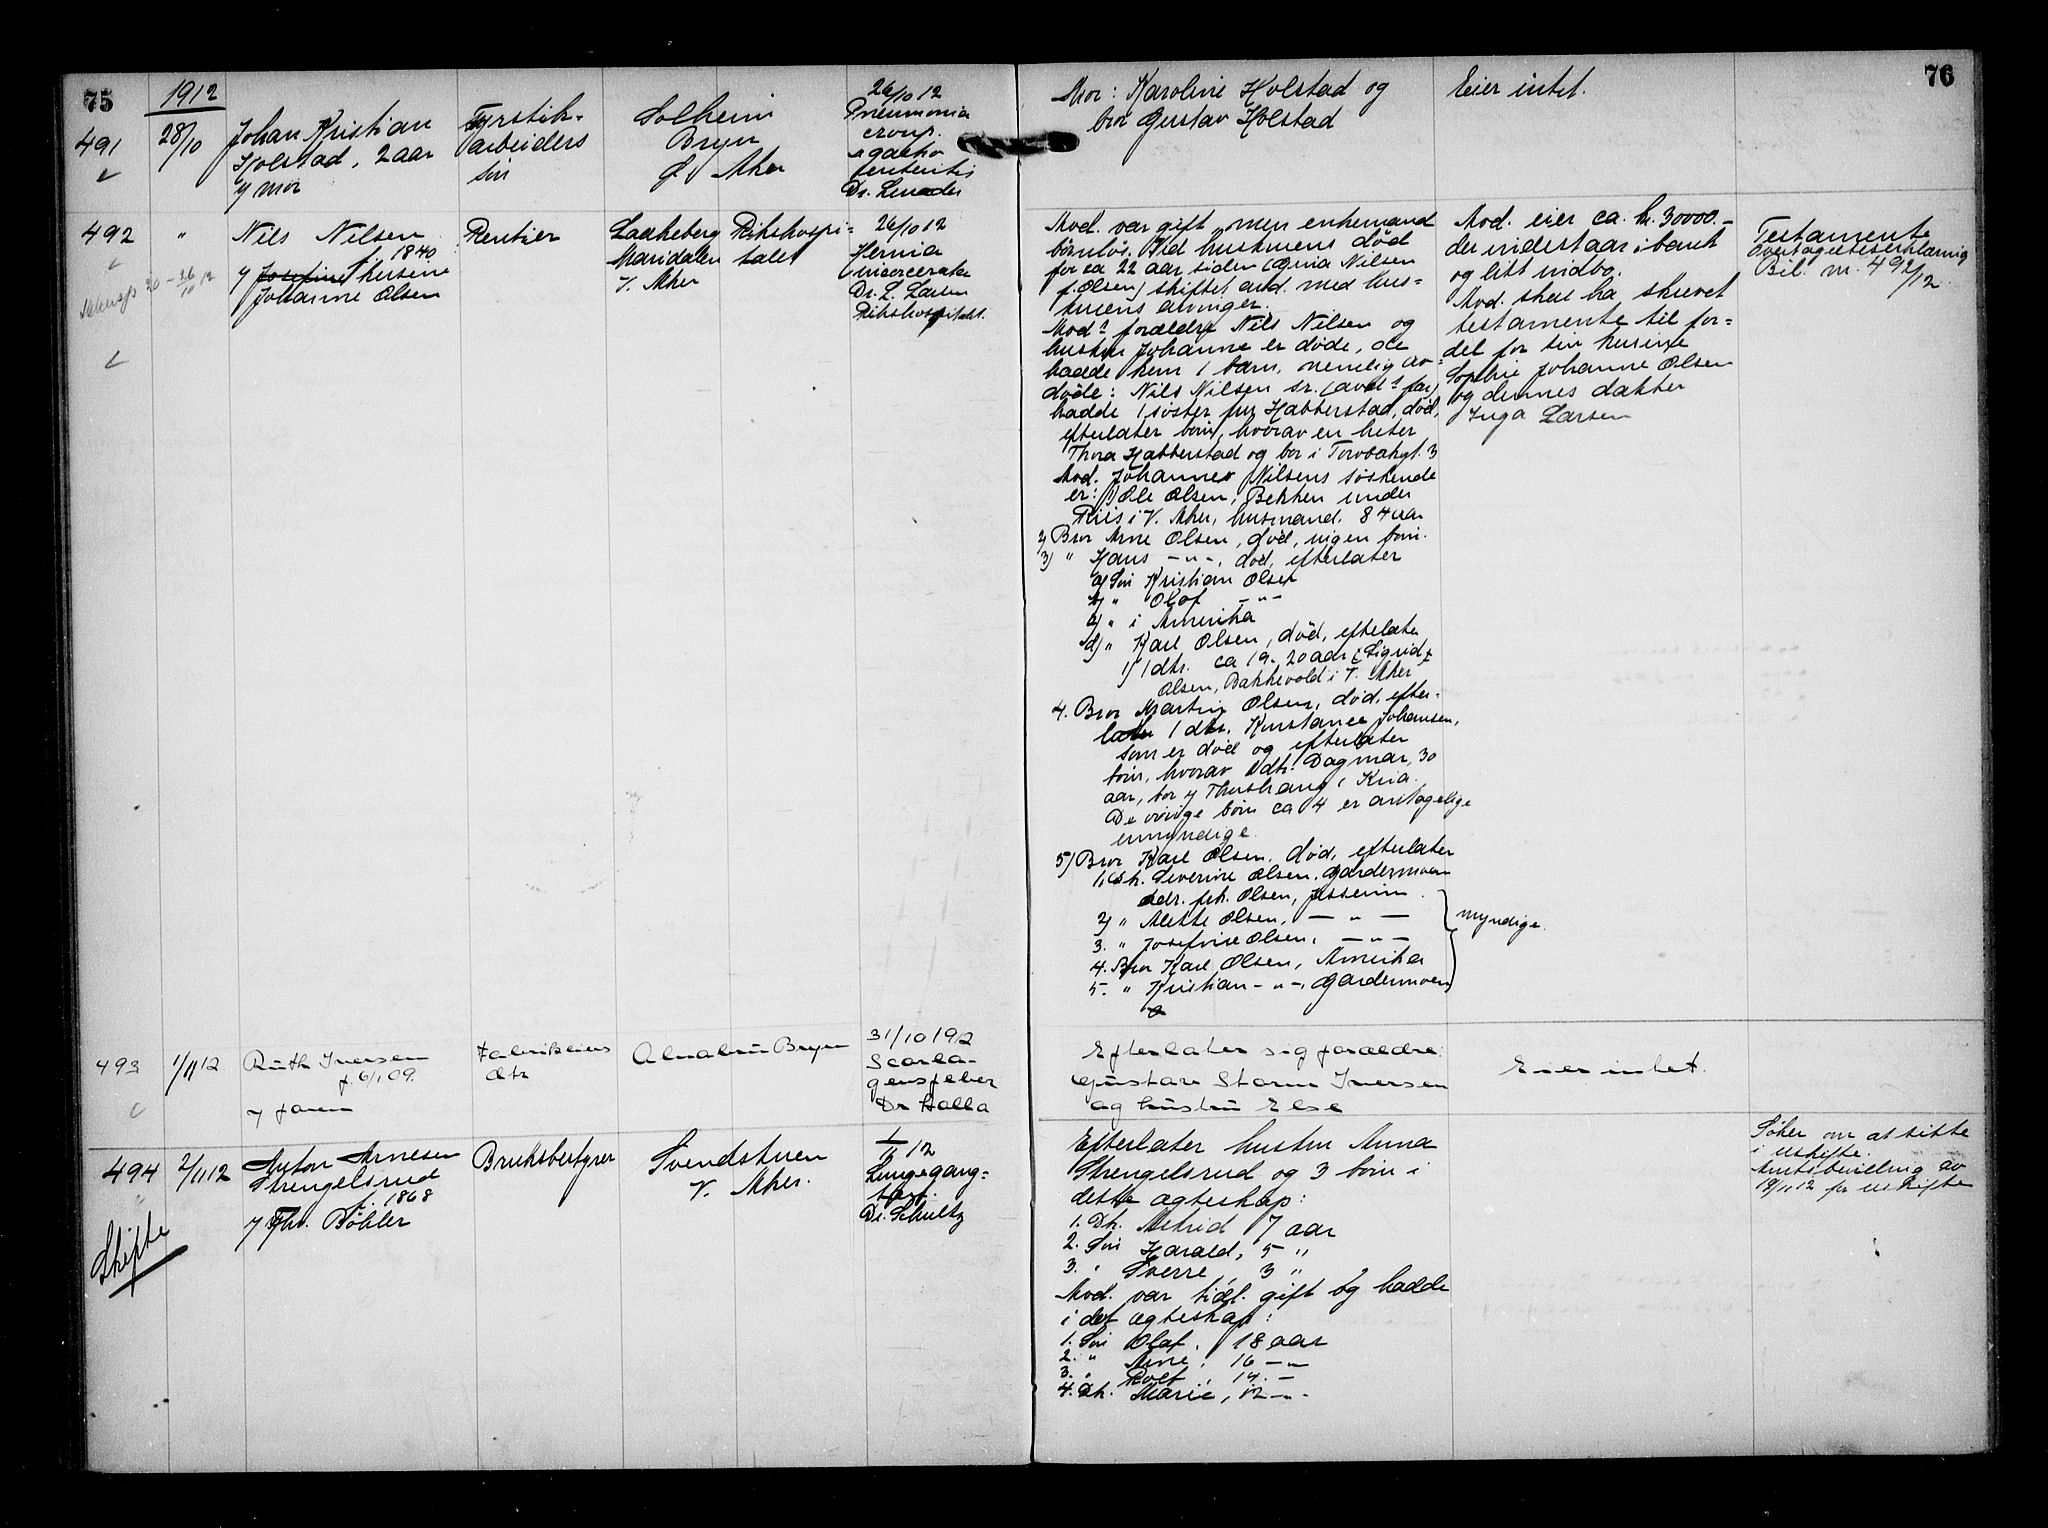 75
1912
491
28/10
Johan Kristian
Holstad, 2 aar
v/ mor
Fyrstik-
arbeiders
søn
Solheim
Bryn
Ø. Aker
26/10 12
Pneumonia
croup.
gastro
enteritis
Dr.
Mor: Karoline Holstad og
bror Gustav Holstad
Eier intet.
76
492
"
Nils Nilsen
f. 1840
v/ Josefine kusene
Johanne Olsen
Rentier
Laakeberg
Maridalen
V. Aker
Rikshospi-
talet
26/10 12
Hernia
incarcerata
Dr. L. Larsen
Rikshospitalet.
Avd. var gift, men enkemand
barnløs. Ved hustruens død
for ca 22 aar siden ( Nilsen
f. Olsen) skiftet avd. med hus-
truens arvinger.
Avd's forældre Nils Nilsen og
hustru Johanne er døde, de
hadde kun 1 barn, nemlig av-
døde: Nils Nilsen sr. (avd's far)
hadde 1 søster fru Habberstad, død,
efterlater børn, hvorav en heter
Thora Habberstad og bor i 3
Avd. Johanne Nilsens søskende
er: 1) Ole Olsen, Bekken under
Riis i V. Aker, husmand. 84 aar
2) Bror Arne Olsen, død, ingen børn.
3) " Hans — " —, død, efterlater
a) Søn Kristian Olsen
b) " Olof — " —
c) " i Amerika
d) " Karl Olsen, død, efterlater
1) 1 dtr. ca 19-20 aar (Sigrid)
Olsen, Bakkevold i V. Aker
4. Bror Martin Olsen, død, efter-
later 1 dtr. Konstance Johansen,
som er død og efterlater
børn, hvorav 1 dtr. Dagmar, 30
aar, bor i Kria.
De øvrige børn ca 4 er antagelig
umyndige.
5) Bror Karl Olsen. død, efterlater
1. Severine Olsen, Gardermoen
adr. frk. Olsen, Jessheim
2) " Mette Olsen, — " —
3. " Josefine Olsen, — " —
4. Bror Karl Olsen, Amerika
5. " Kristian — " —, Gardermoen
myndige.
Avd. eier ca. kr. 30000.-
der indestaar i bank
og litt indbo.
Avd. skal ha skrevet
testamente til for-
del for sin kusine
Sophie Johanne Olsen
og dennes datter
Inga Larsen
Testamente
overtagelseserklæring
Bil. nr. 492/12
493
1/11 12
Ruth Iversen
f. 6/1 09.
v/ faren
Fabrikeiers
dtr
Alnabru Bryn
31/10 1912
Scarla-
gensfeber
Dr Holla
Efterlater sig forældre:
Gustav Storm Iversen
og hustru Else
Eier intet.
494
2/11 12
Skifte
Anton Arnesen
Strengelsrud
f. 1868
v/ Thv. Bøhler
Bruksbestyrer
Svendstuen
V. Aker.
1/11 12
Lungegang-
Dr. Schultz
Efterlater hustru Anna
Strengelsrud og 3 børn i
dette egteskap:
1. Dtr. Astrid 7 aar
2. Søn Harald, 5 "
3. " Sverre, 3 "
Avd. var tidl. gift og hadde
i det egteskap:
1. Søn Olaf, 18 aar
2. " Arne, 16 — "
3. " Rolf, 14. —
4. Dtr. Marie, 12 — " -
Søker om at sitte
i uskifte.
Amtsbevilling av
19/11 12 for uskifte